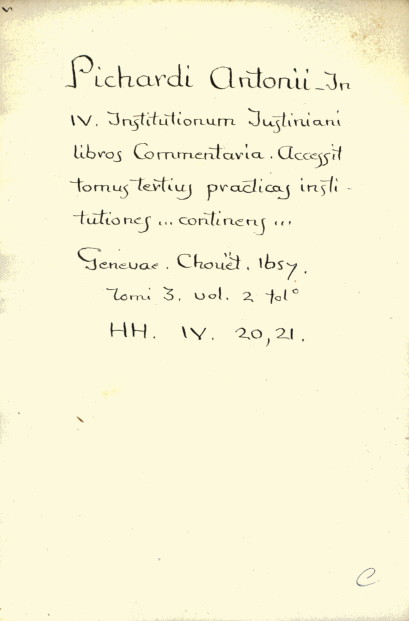 Pichardi Antonii - In
IV. Institutionum Iustiniani
libros Commentaria. Accessit
tomus tertius practicas insti-
tutiones ... continens ...
Genevae. Chouët. 1657.
Tomi 3. vol. 2 fol°
HH. IV. 20, 21.
C